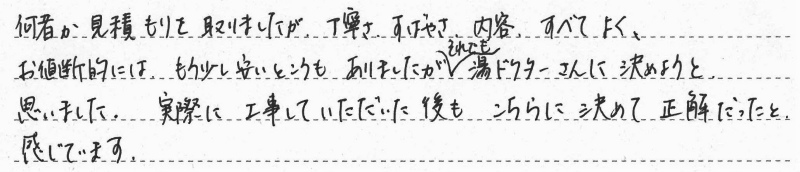 何者か見積もりを取りましたが、丁寧さ、すばやさ、内容、すべてよく、
お値断的には、もう少し安いところもありましたが✓それでも湯ドクターさんに決めようと
思いました。実際に工事していただいた後も、こちらに決めて正解だったと、
感じています。